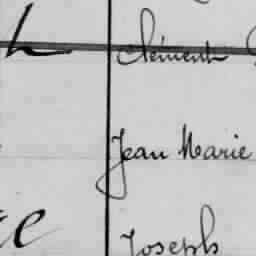 h Clément
Jean Marie
ce Joseph